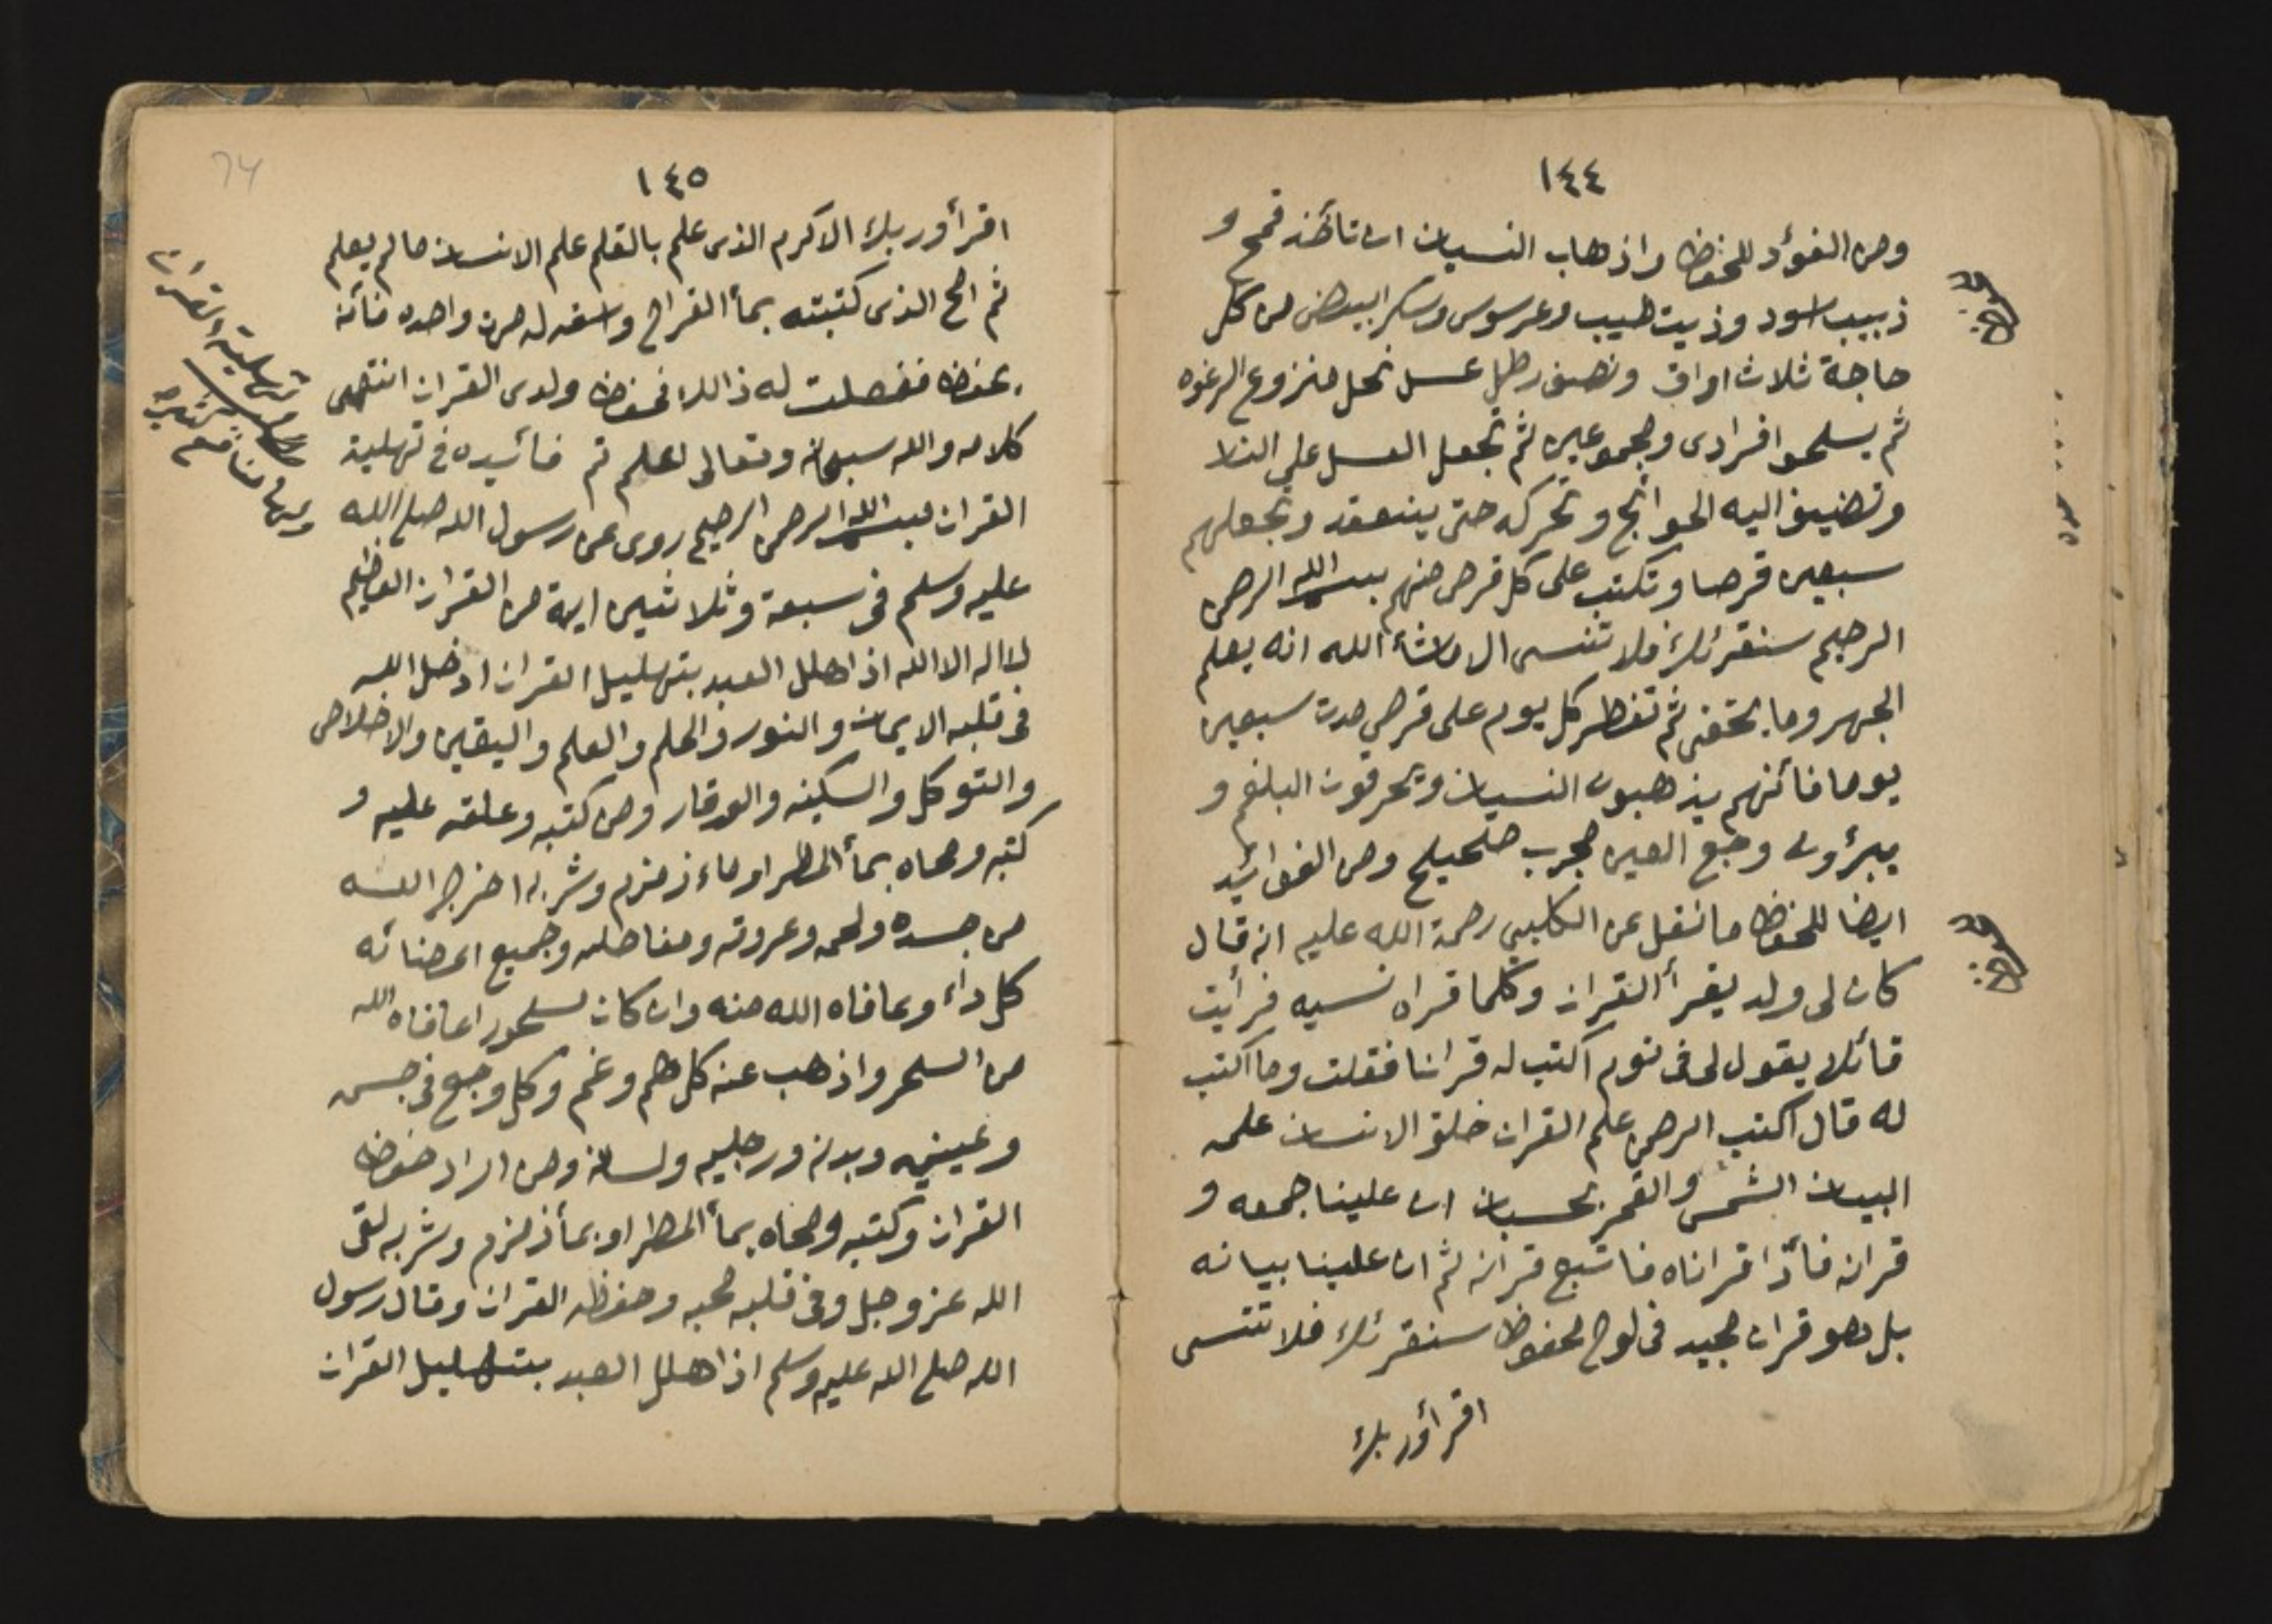 ١٤٤
ومن الفوئد للحفظ واذهاب النسيان ان تاخذ قمح و
زبيب اسود وزيت طيب وعرسوس وسكر ابيض من كل
حاجة ثلاث اواق ونصف رطل عسل نحل منزوع الرغوه
ثم يسحقوا افرادى ومجموعين ثم تجعل العسل على النار
وتضيف اليه الحوائج وتحركه حتى ينعقد وتجعلهم
سبعين قرصا وتكتب على كل قرص منهم بسم الله الرحمن
الرحيم سنقرئك فلا تنسى الا ماشأ الله انه يعلم
الجهر وما يخفى ثم تفطر كل يوم على قرص مدت سبعين
يوما فأنهم يذهبون النسيان ويحرقون البلغم و
يبرؤن وجع العين مجرب صحيح ومن الفوائد
ايضا للحفظ ما نقل عن الكلبي رحمة الله عليه انه قال
كان لى ولد يقرأ القران وكلما قراه نسيه فرأيت
قائلا يقول لى فى نوم اكتب له قرانا فقلت وما اكتب
له قال اكتب الرحمن علم القران خلق الانسان علمه
البيان الشمس والقمر بحسبان ان علينا جمعه و
قرانه فأذا قراناه فاتبع قرانه ثم ان علينا بيانه
بل هو قران مجيد فى لوح محفوظ سنقرئك فلا تنسى
اقرأ وربك
١٤٥
اقرأ وربك الاكرم الذى علم بالقلم علم الانسان ما لم يعلم
ثم امح الذى كتبته بمأ القراح واسقه له مرت واحده فأنه
يحفظ ففعلت له ذالك فحفظ ولدى القران انتهى
كلامه والله سبحانه وتعالى اعلم تم فأئيده فى تهلية
القران بسم الله الرحمن الرحيم روى عن رسول الله صلى الله
عليه وسلم فى سبعة وثلاثين اية من القران العظيم
لا اله الا الله اذا هلل العبد بتهليل القران ادخل الله
فى قلبه الايمان والنور والحلم والعلم واليقين والاخلاص
والتوكل والسكينه والوقار ومن كتبه وعلقه عليه و
كتبه ومحاه بمأ المطر او ماء زمزم وشربه اخرج الله
من جسده ولحمه وعروقه ومفاصله وجميع اعضائه
كل داء وعافاه الله منه وان كان مسحورا عافاه الله
من السحر واذهب عنه كل هم وغم وكل وجع فى جسمه
وعينيه وبدنه ورجليه ولسانه ومن اراد حفظ
القران وكتبه ومحاه بمأ المطر او بمأ زمزم وشربه لقى
الله عز وجل وفى قلبه محبه وحفظه القران وقال رسول
الله صلى الله عليه وسلم اذا هلل العبد بتهليل القران
تهلية القران
وبها منافع كثيره
74